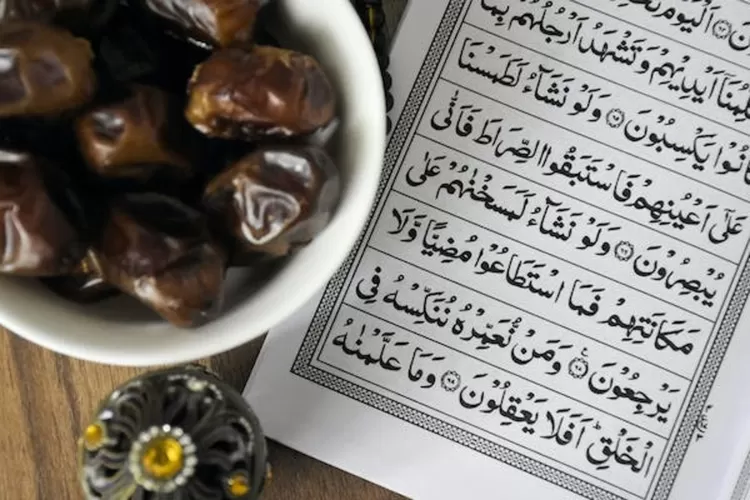 اَلْيَوْمَ
اَيْدِيْهِمْ وَتَشْهَدُ اَرْجُلُهُمْ بِمَا
كَانُوْا يَكْسِبُوْنَ ۝ وَلَوْ نَشَآءُ لَطَمَسْنَا
عَلٰٓى اَعْيُنِهِمْ فَاسْتَبَقُوا الصِّرَاطَ فَاَنّٰى
يُبْصِرُوْنَ ۝ وَلَوْ نَشَآءُ لَمَسَخْنٰهُمْ عَلٰى
مَكَانَتِهِمْ فَمَا اسْتَطَاعُوْا مُضِيًّا وَّلَا
يَرْجِعُوْنَ ۝ وَمَنْ نُّعَمِّرْهُ نُنَكِّسْهُ فِى
الْخَلْقِؕ اَفَلَا يَعْقِلُوْنَ ۝ وَمَا عَلَّمْنٰهُ